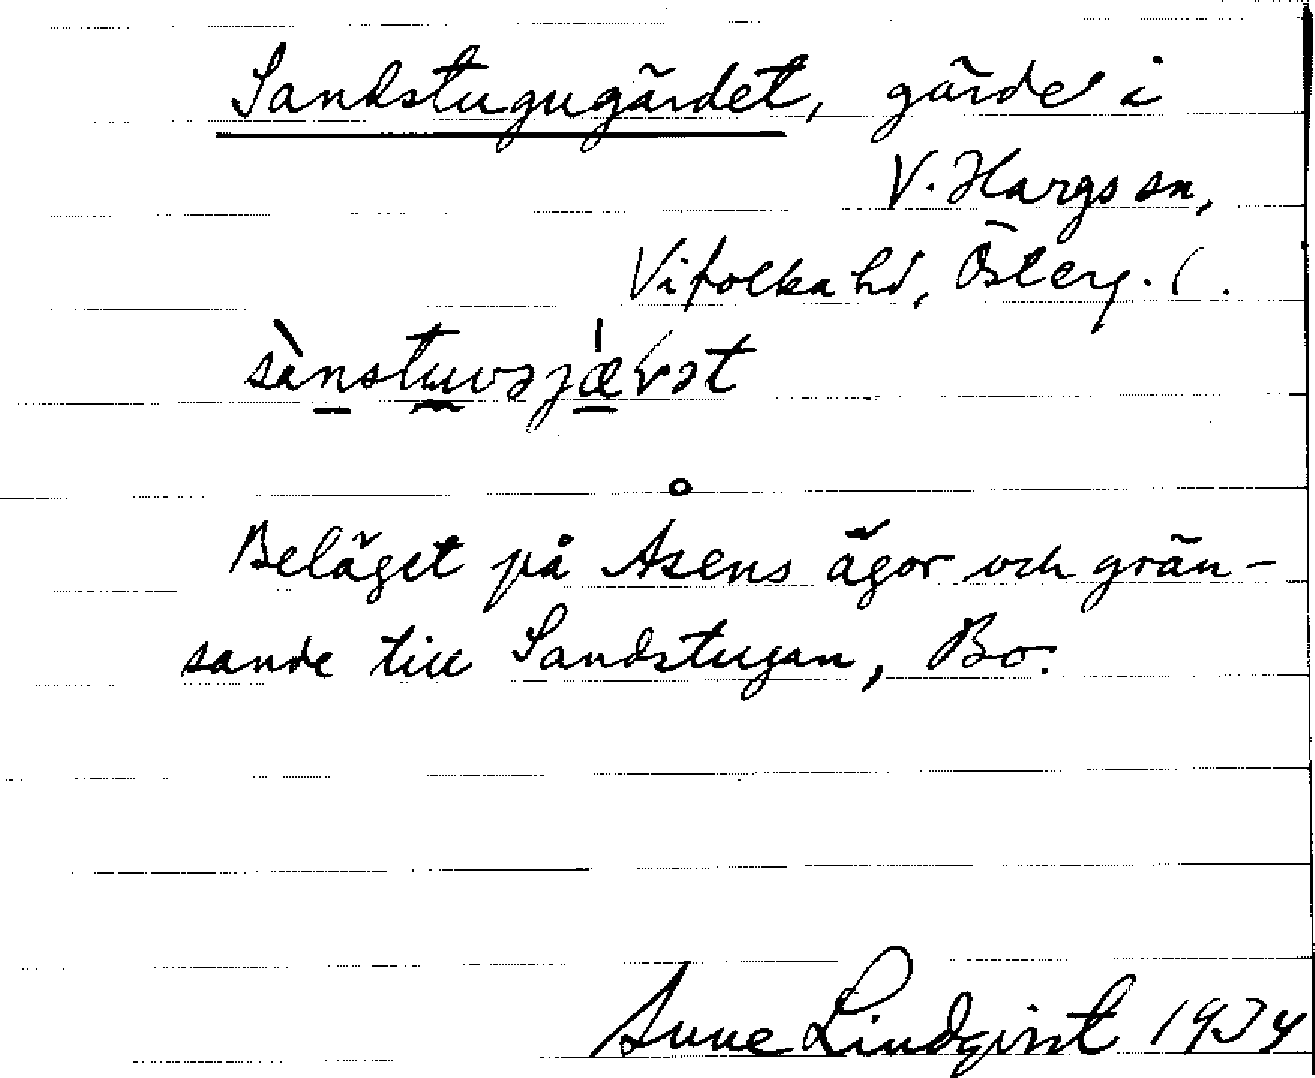 Sandstugugärdet, gärde i
V. Hargs sn,
Vifolka hd, Österg. l.
sànstuvəjǽrət
Beläget på Åsens ägor och grän-
sande till Sandstugan, Bo.
Sune Lindqvist 1934